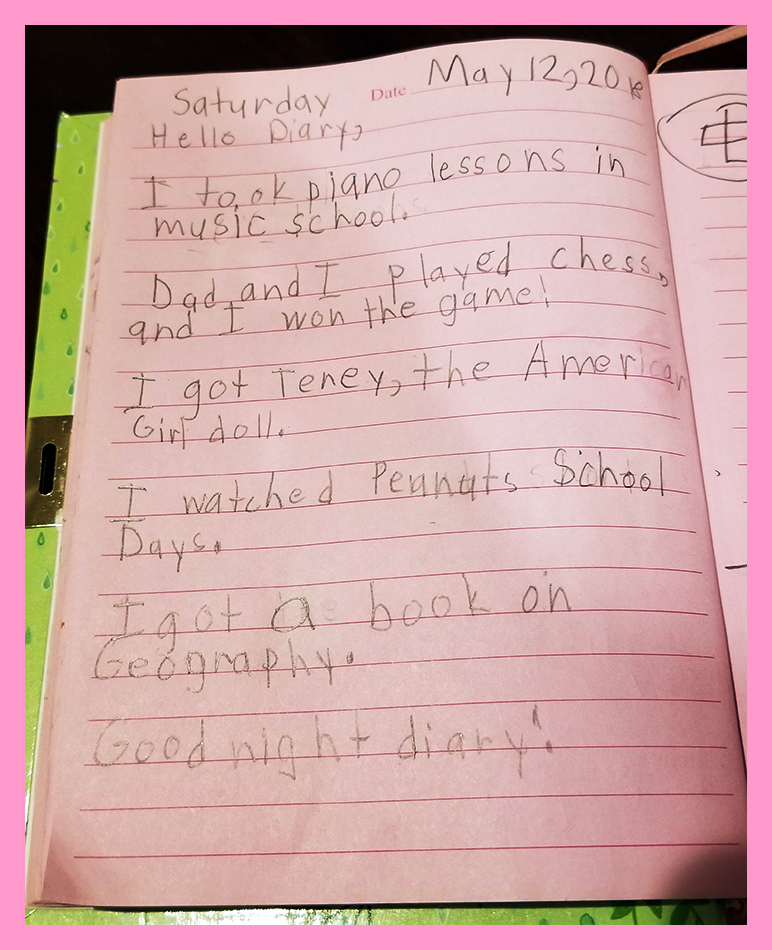 Saturday Date May 12, 2018
Hello Diary,
I took piano lessons in
music school.
Dad and I played chess,
and I won the game!
I got Teney, the American
Girl doll.
I watched Peanuts School
Days.
I got a book on
Geography.
Good night diary!